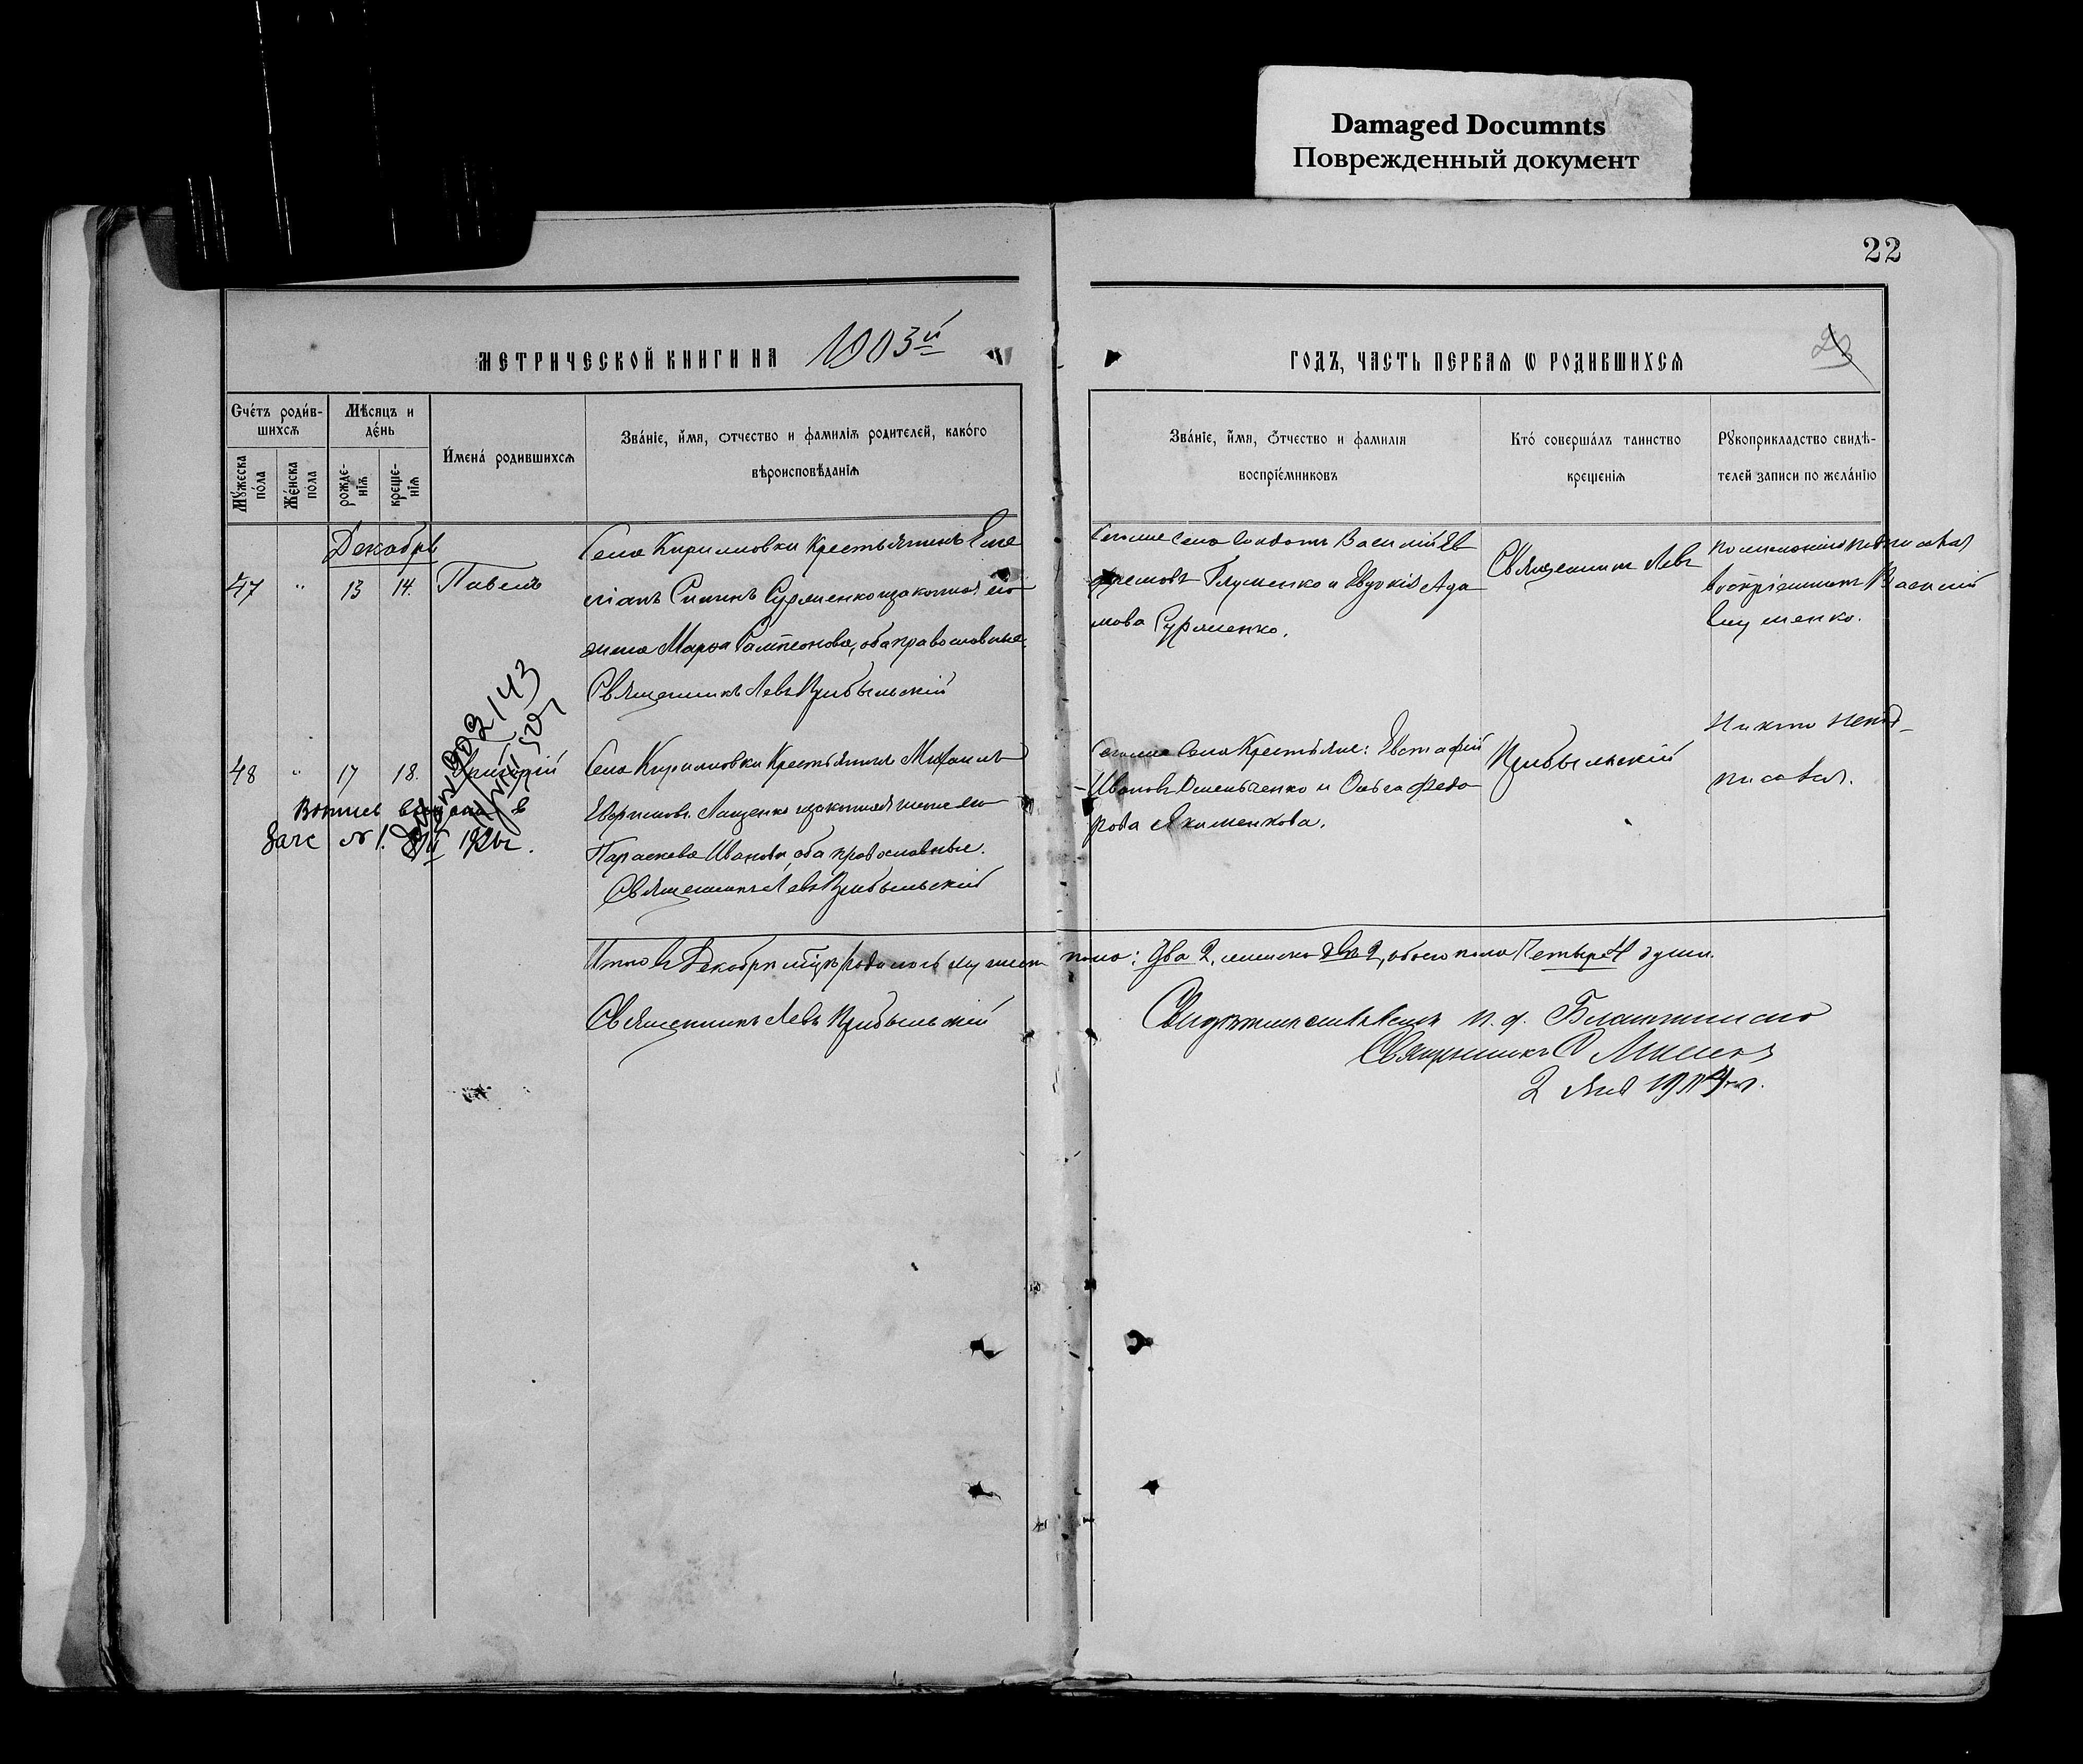 Damaged Documnts
Поврежденный документ
22
МЕТРИЧЕСКОЙ КНИГИ НА 1903й
ГОДЪ, ЧАСТЬ ПЕРВАЯ Ѡ РОДИВШИХСЯ
23
Счетъ родив-
шихся
Мѣсяцъ и
день
Мужеска
пола
Женска
пола
рожде-
нія
креще-
нія
Имена родившихся
Званіе, имя, отчество и фамилія родителей, какого
вѣроисповѣданія
Званіе, имя, отчество и фамилія
воспріемниковъ
Кто совершалъ таинство
крещенія
Рукоприкладство свидѣ-
телей записи по желанію
Декабрь
47 " 13 14. Павелъ
Села Кирилловки Крестьянинъ Еме
ліанъ и законная его
жена Марѳа Сампсонова, оба православные.
Священникъ Левъ Прибыльскій
Тогоже Села Солдатъ Василій Ев
Глущенко и Евдокія Ада
мова
Священникъ Левъ
воспріемникъ Василій
48 " 17 18. Григорій
Села Кирилловки Крестьянинъ Михаилъ
Лащенко и законная жена его
Параскева Иванова, оба православные.
Священникъ Левъ Прибыльскій
Тогоже Села Крестьяне: Евстафій
Ивановъ Омельченко и Ольга Федо
рова Якименкова.
Прибыльскій
Никто непод-
писался.
в
№ 1.
Итого въ Декабрѣ м-цѣ родилось мужеск пола: Два 2, женска двѣ 2, обоего пола Четыре 4 души.
Священникъ Левъ Прибыльскій
п. д. Благочиннаго
Священникъ
2 Янв 1904 г.